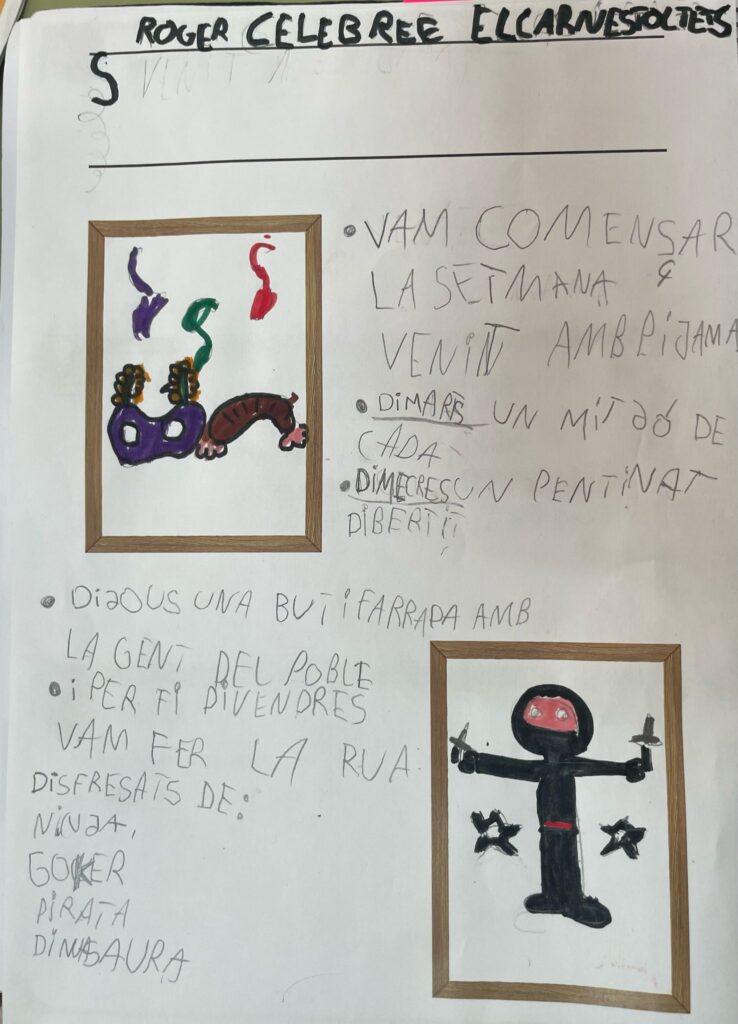 ROGER CELEBREE ELCARNESTOLTETS
S VENIT A
VAM COMENSAR
Ç
LA SETMANA
VENINT AMB PIJAMA
DIMARTS UN MITJÓ DE
CADA
DIMECRES UN PENTINAT
DIBERTIT
DIJOUS UNA BUTIFARRADA AMB
LA GENT DEL POBLE
i PER FI DIVENDRES
VAM FER LA RUA:
DISFRESATS DE:
NINJA,
GOKER
PIRATA
DINASAURA